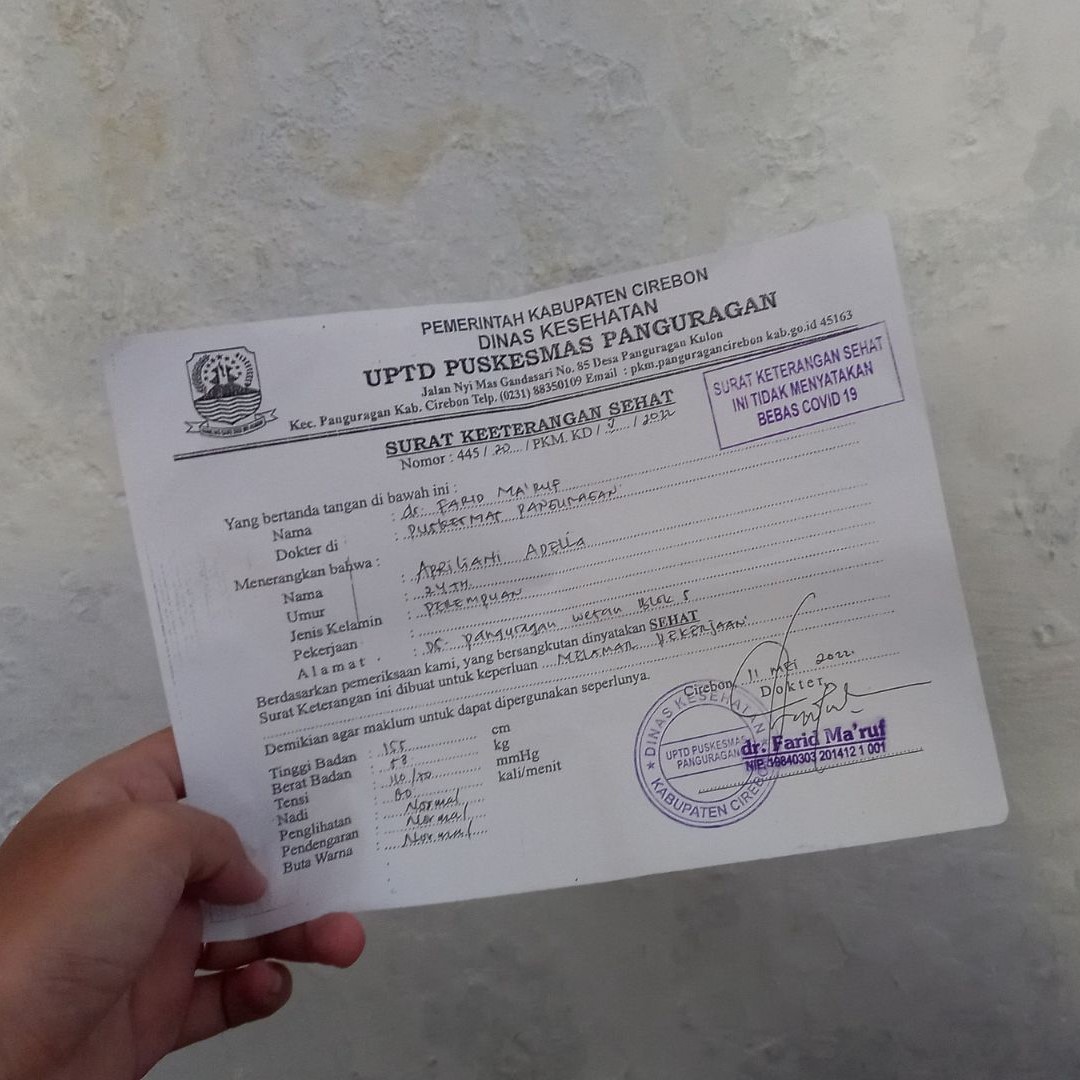 PEMERINTAH KABUPATEN CIREBON
DINAS KESEHATAN
UPTD PUSKESMAS PANGURAGAN
Jalan Nyi Mas Gandasari No. 85 Desa Panguragan Kulon
Kec. Panguragan Kab. Cirebon Telp. (0231) 88350109 Email : pkm.panguragancirebon kab.go.id 45163
SURAT KETERANGAN SEHAT
INI TIDAK MENYATAKAN
BEBAS COVID 19
SURAT KEETERANGAN SEHAT
Nomor : 445 / 20 / PKM. KD / V / 2022
Yang bertanda tangan di bawah ini :
Nama : dr. FARID MA'RUF
Dokter di : PUSKESMAS PANGURAGAN
Menerangkan bahwa :
Nama : APRILIANI ADELIA
Umur : 24 TH
Jenis Kelamin : PEREMPUAN
Pekerjaan :
Alamat : DS. Panguragan wetan Blok 5
Berdasarkan pemeriksaan kami, yang bersangkutan dinyatakan SEHAT
Surat Keterangan ini dibuat untuk keperluan MELAMAR PEKERJAAN
Demikian agar maklum untuk dapat dipergunakan seperlunya.
Tinggi Badan : 155 cm
Berat Badan : 53 kg
Tensi : 110/70 mmHg
Nadi : 80 kali/menit
Penglihatan : Normal
Pendengaran : Normal
Buta Warna : Normal
Cirebon, 11 MEI 2022
Dokter,
DINAS KESEHATAN
UPTD PUSKESMAS
PANGURAGAN
KABUPATEN CIREBON
dr. Farid Ma'ruf
NIP. 19840303 201412 1 001